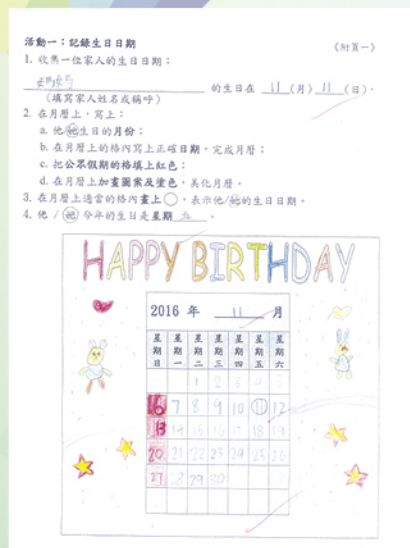 活動一：記錄生日日期
《附頁一》
1. 收集一位家人的生日日期：
媽媽 的生日在 11 (月) 11 (日)。
(填寫家人姓名或稱呼)
2. 在月曆上，寫上：
a. 他/她生日的月份；
b. 在月曆上的格內寫上正確日期，完成月曆；
c. 把公眾假期的格填上紅色；
d. 在月曆上加畫圖案及塗色，美化月曆。
3. 在月曆上適當的格內畫上○，表示他/她的生日日期。
4. 他 / 她 今年的生日是星期 五 。
HAPPY BIRTHDAY
2016 年 11 月
星期日 星期一 星期二 星期三 星期四 星期五 星期六
1 2 3 4 5
6 7 8 9 10 11 12
13 14 15 16 17 18 19
20 21 22 23 24 25 26
27 28 29 30